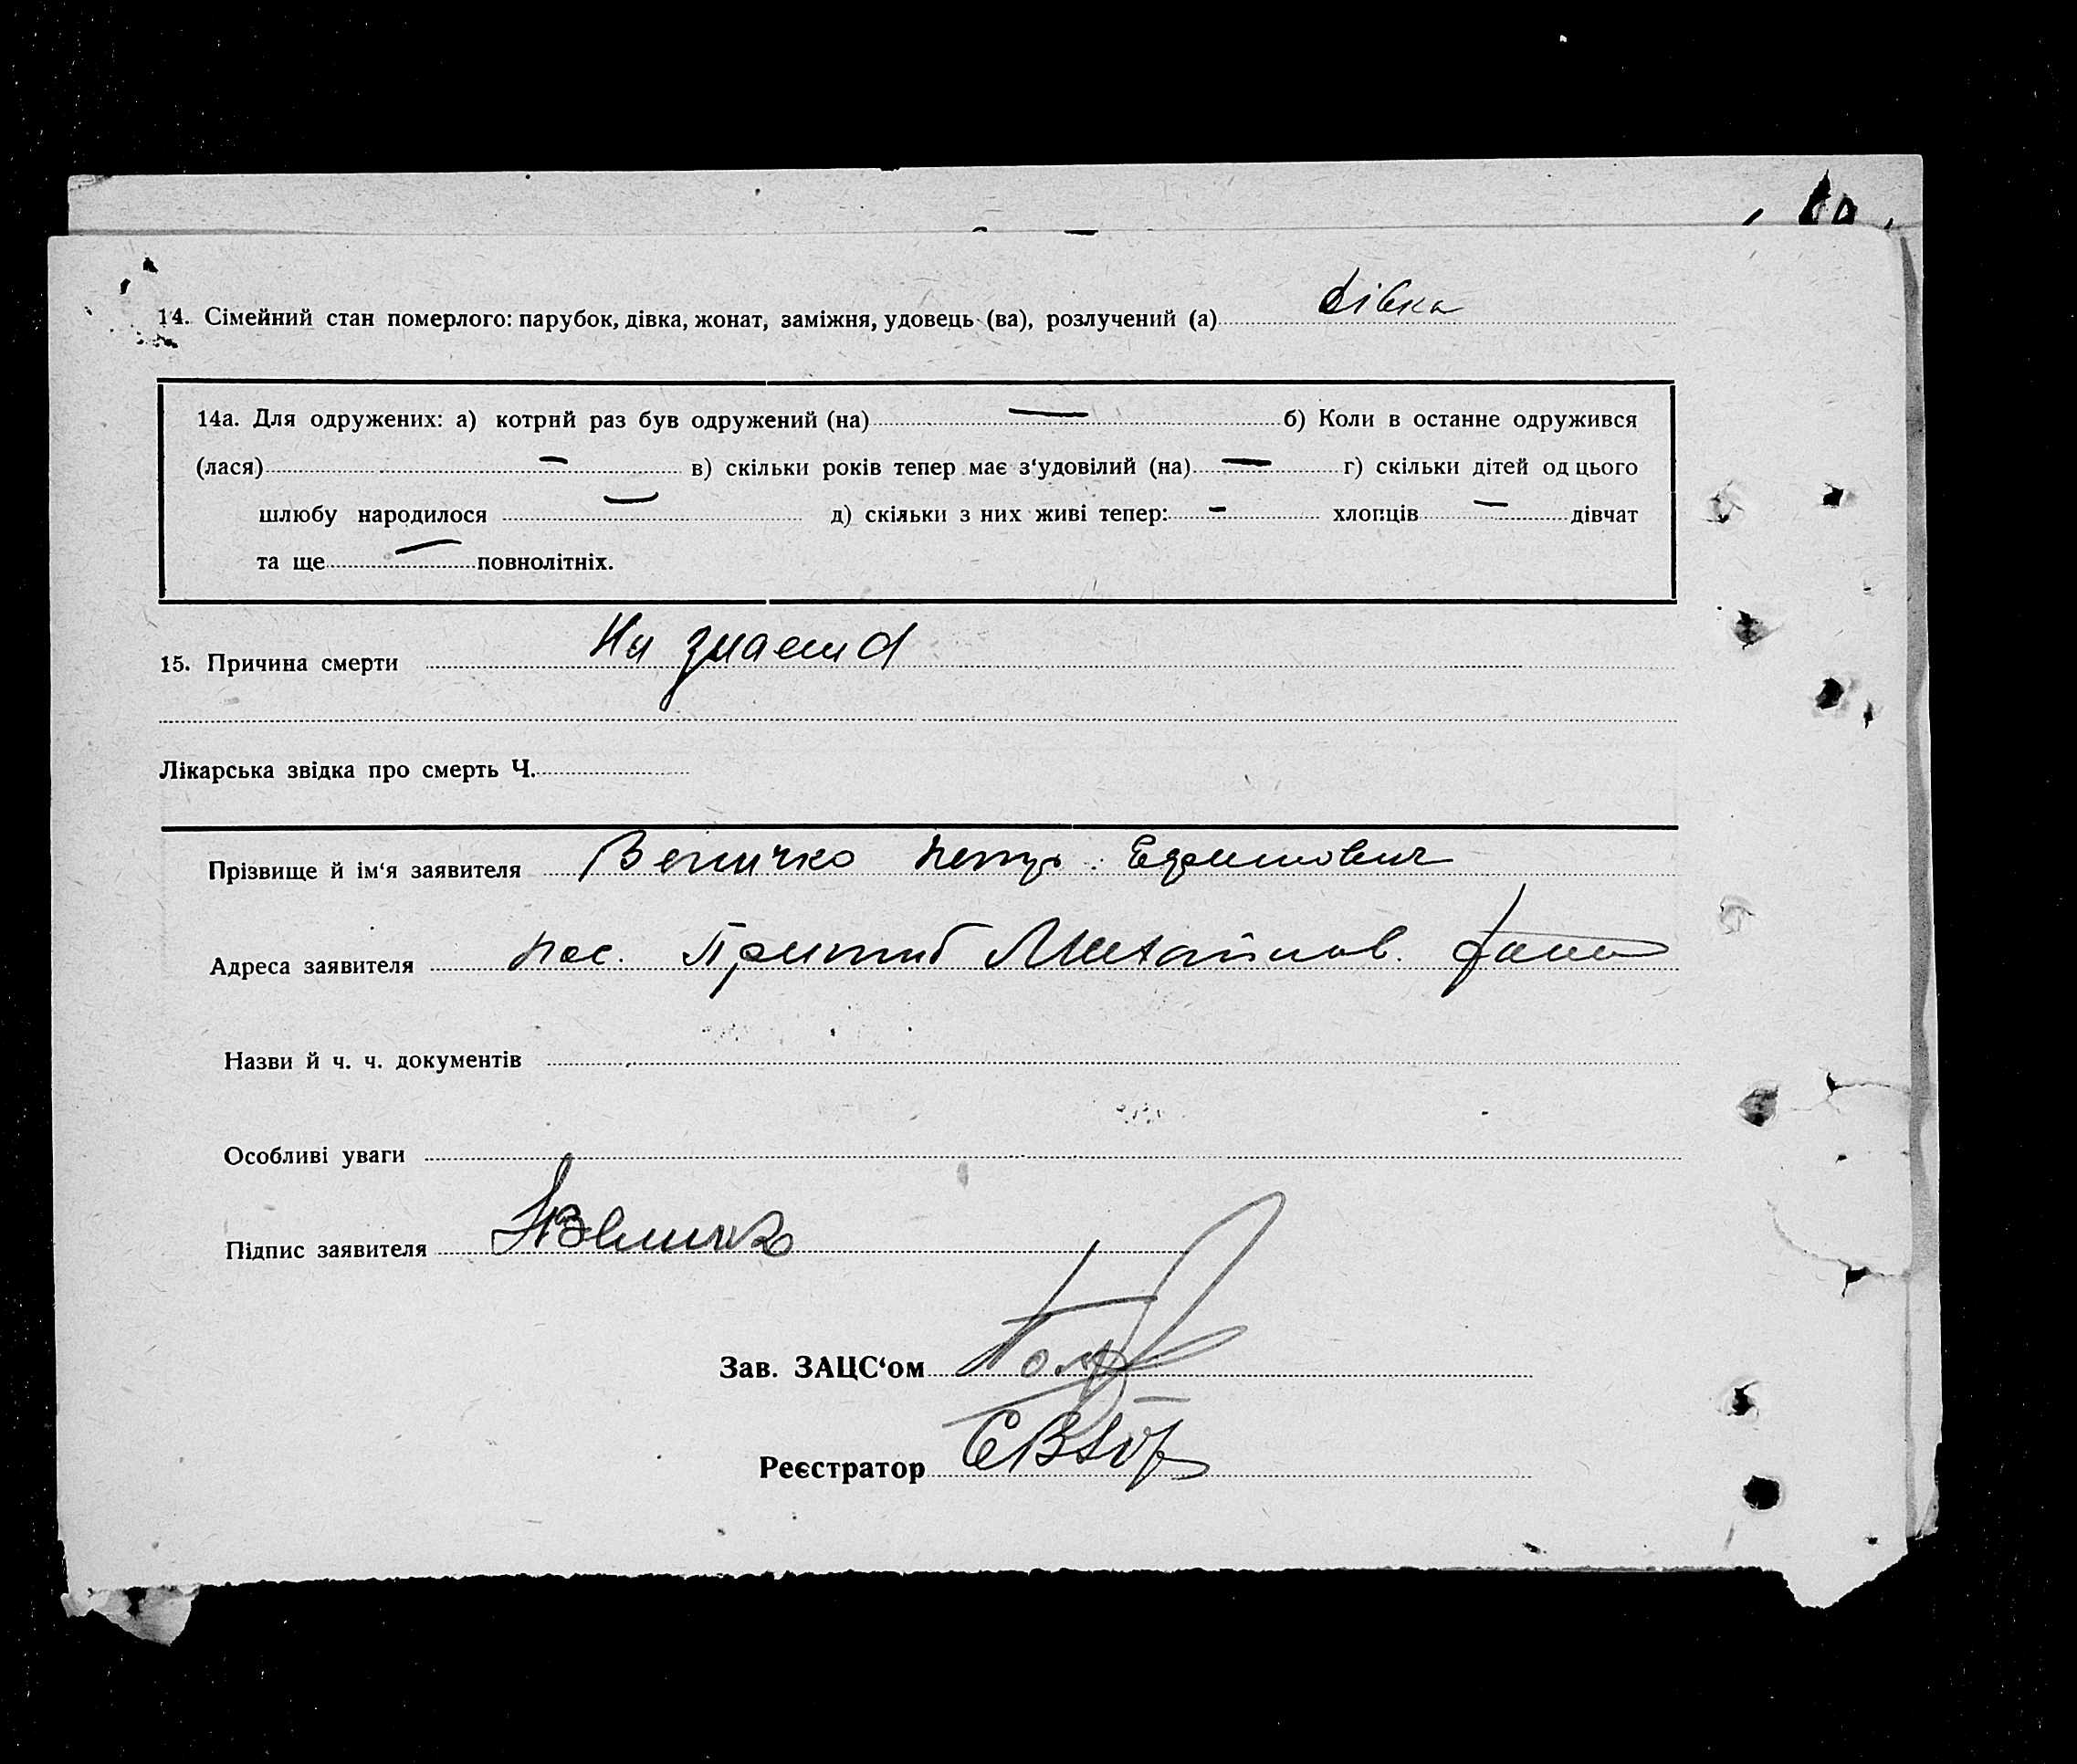 14. Сімейний стан померлого: парубок, дівка, жонат, заміжня, удовець (ва), розлучений (а) дівка
14а. Для одружених: а) котрий раз був одружений (на) — б) Коли в останне одружився
(лася) — в) скільки років тепер має з‘удовілий (на) — г) скільки дітей од цього
шлюбу народилося — д) скільки з них живі тепер: — хлопців — дівчат
та ще — повнолітніх.
15. Причина смерти
Лікарська звідка про смерть Ч.
Прізвище й ім‘я заявителя Величко Петр Ефимович
Адреса заявителя пос. Притиб Михайлов.
Назви й ч. ч. документів
Особливі уваги
Підпис заявителя Величко
Зав. ЗАЦС‘ом
Реєстратор